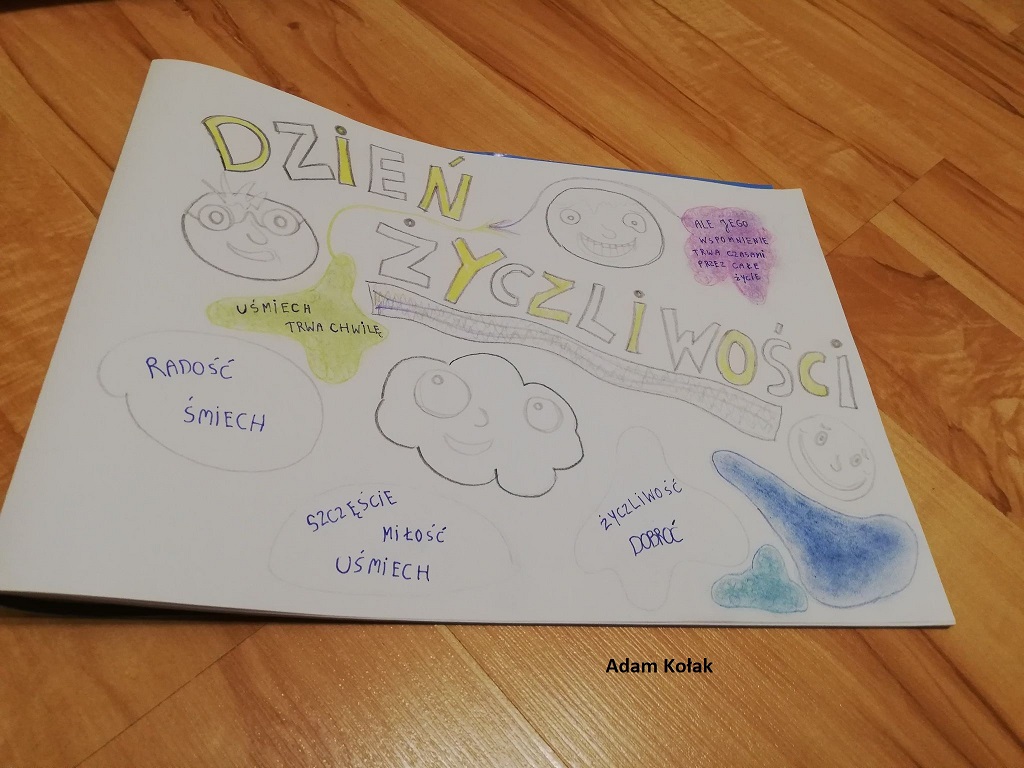 DZIEŃ
ŻYCZLIWOŚCI
UŚMIECH
TRWA CHWILĘ
ALE JEGO
WSPOMNIENIE
TRWA CZASAMI
PRZEZ CAŁE
ŻYCIE
RADOŚĆ
ŚMIECH
SZCZĘŚCIE
MIŁOŚĆ
UŚMIECH
ŻYCZLIWOŚĆ
DOBROĆ
Adam Kołak